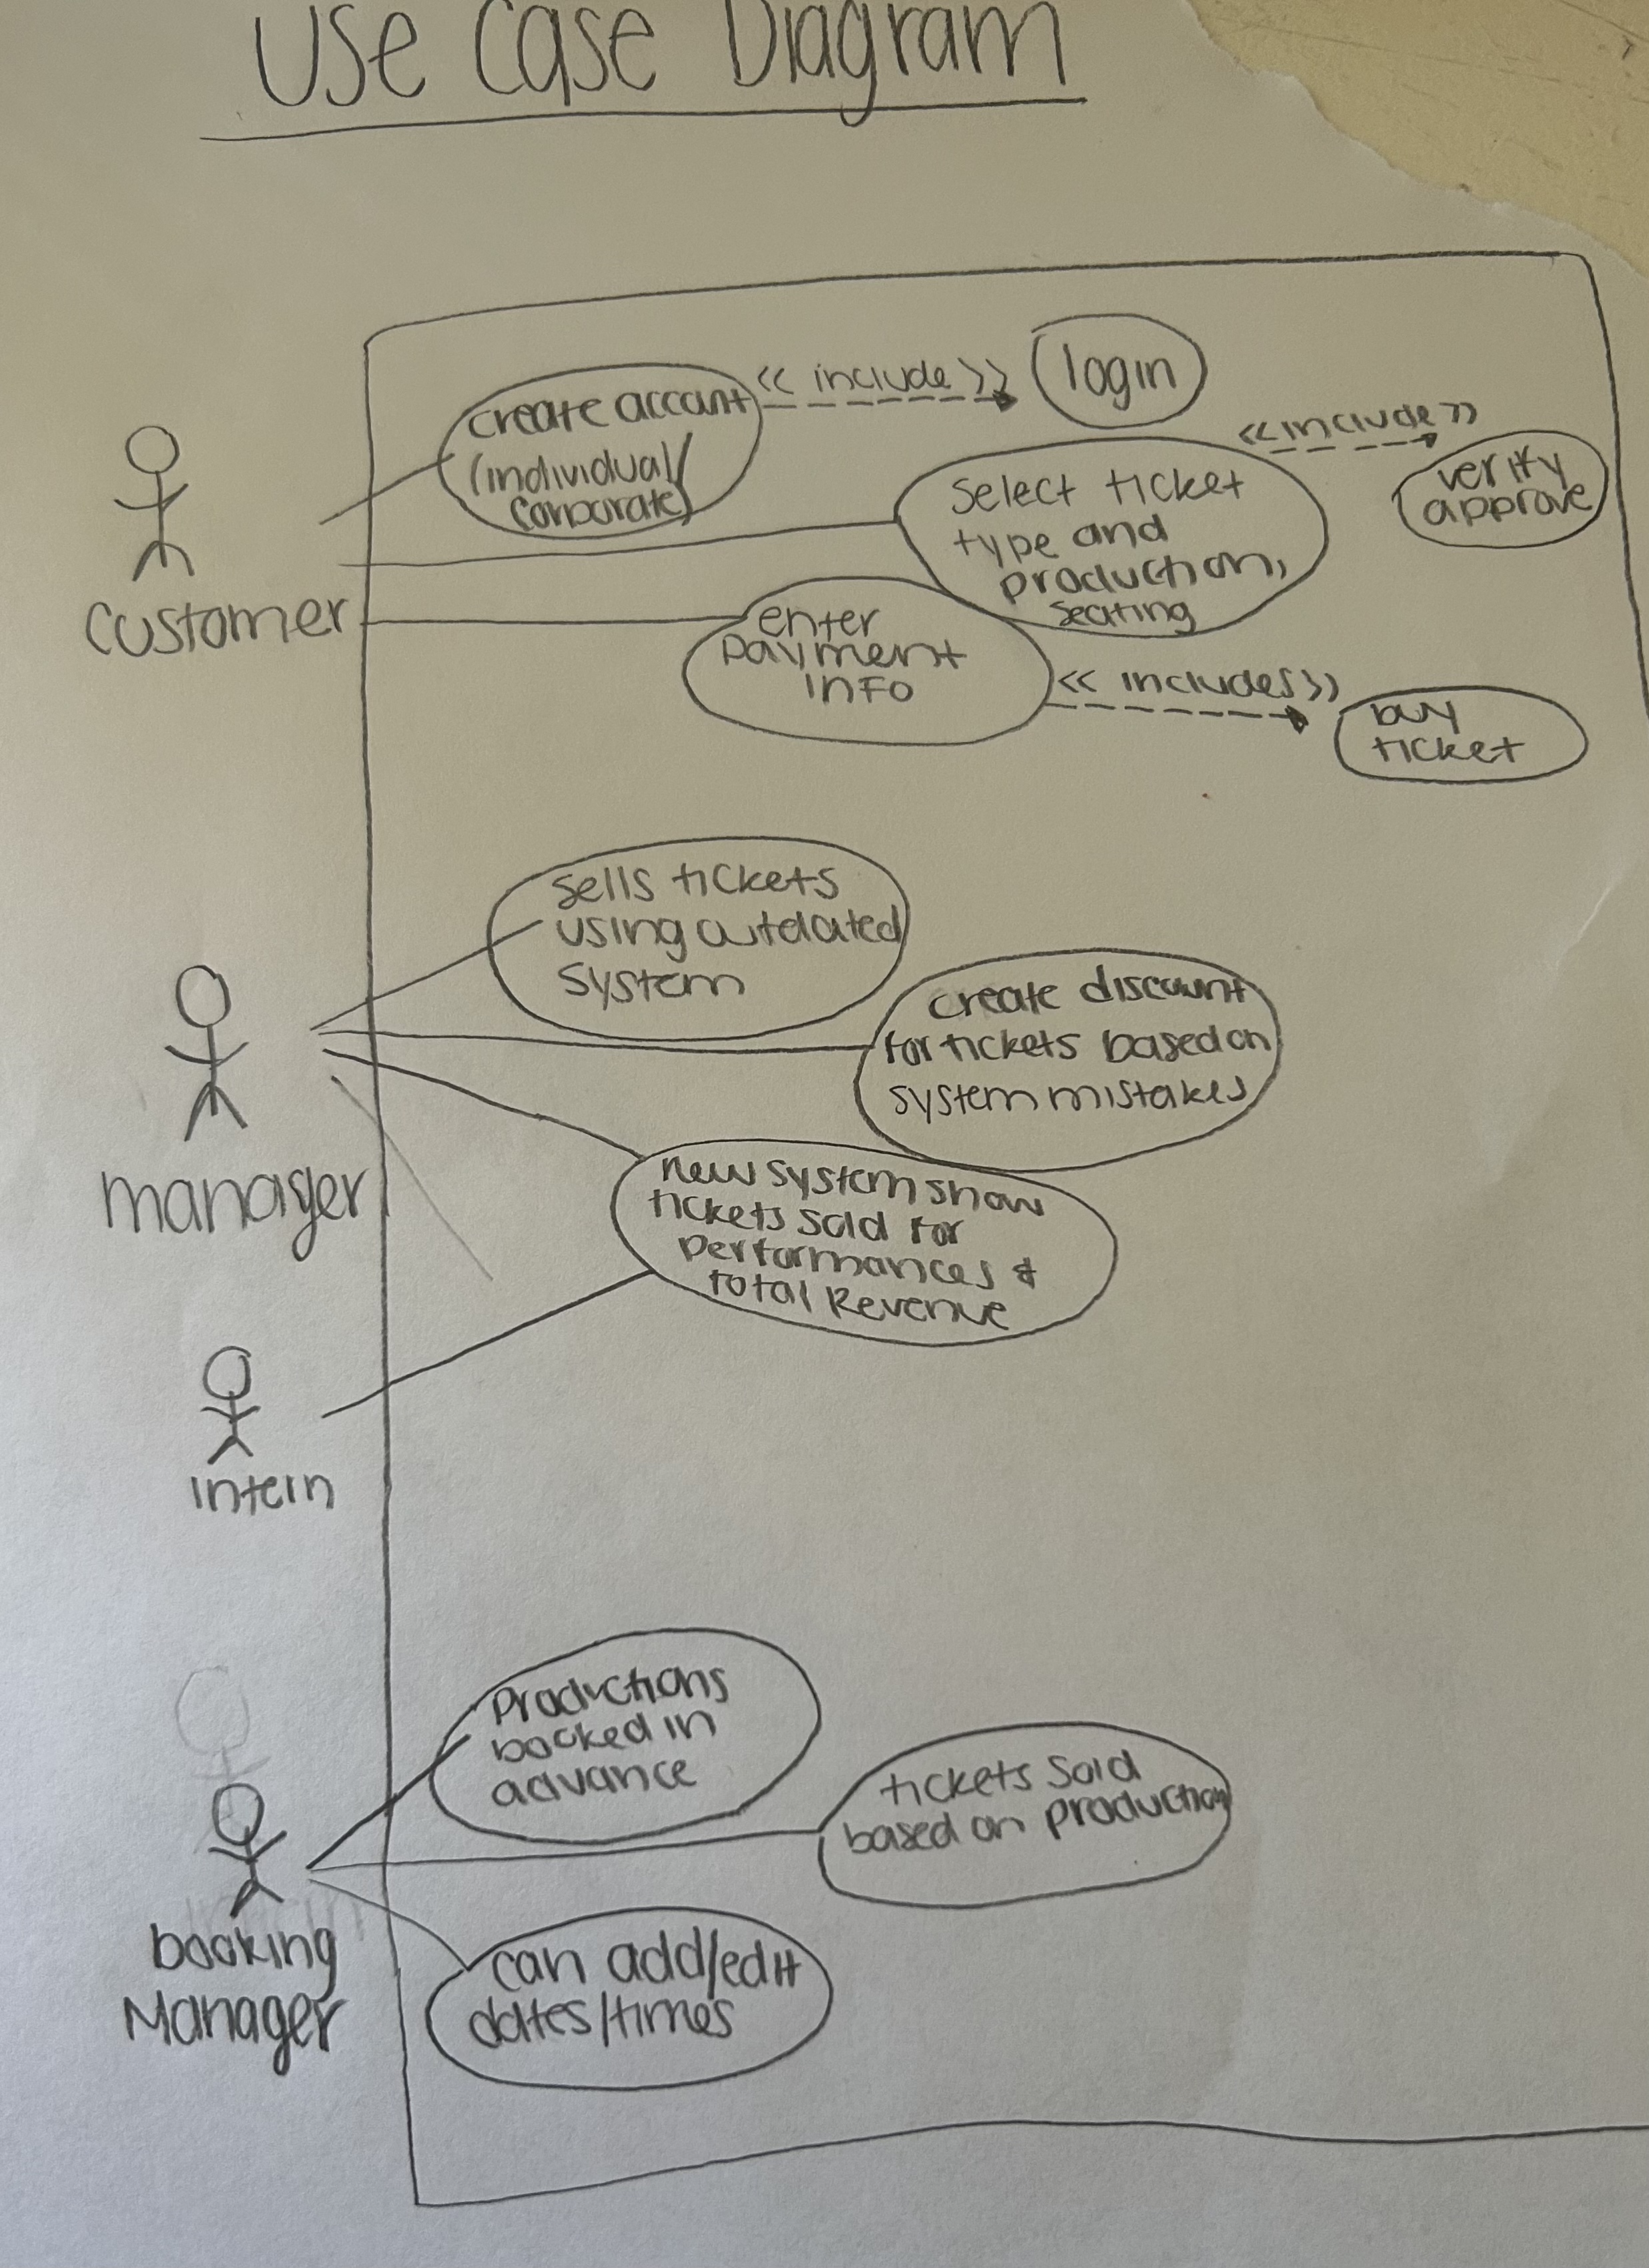 Use Case Diagram
create account
(individual/
corporate)
<< include >>
login
<<include>>
verify
approve
select ticket
type and
production,
seating
customer
enter
payment
info
<< includes>>
buy
ticket
sells tickets
using outdated
system
create discount
for tickets based on
system mistakes
manager
new system show
tickets sold for
performances &
total Revenue
intern
Productions
booked in
advance
tickets sold
based on production
booking
Manager
can add/edit
dates/times